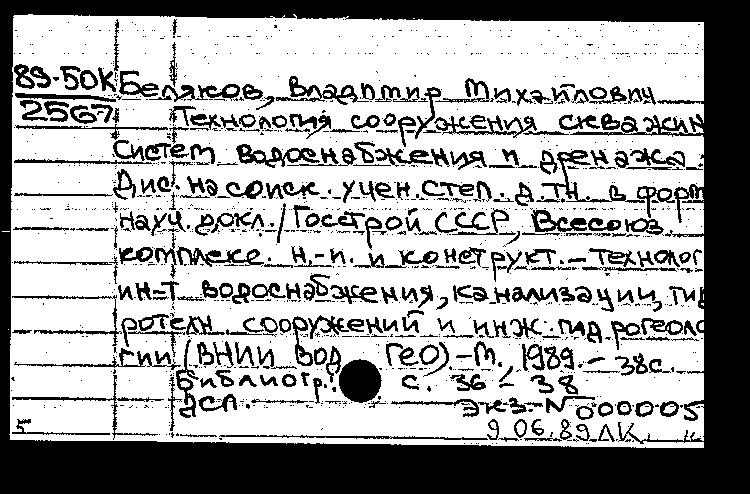 89-50К Беляков, Владимир Михайлович
2567 Технология сооружения скважин
Систем водоснабжения и дренажа :
Дис. на соиск. учен. степ. д.т.н. в форм
науч. докл./Госстрой СССР, Всесоюз.
комплекс. н.-и. и конструкт.-технолог
ин-т водоснабжения, канализации, гид
ротехн. сооружений и инж. гидрогеоло
гии (ВНИИ ВОД ГЕО)-М., 1989.- 38с.
Библиогр.: с. 36-38
ДСП. Экз.-N 000005
5 9.06.89 ЛК.